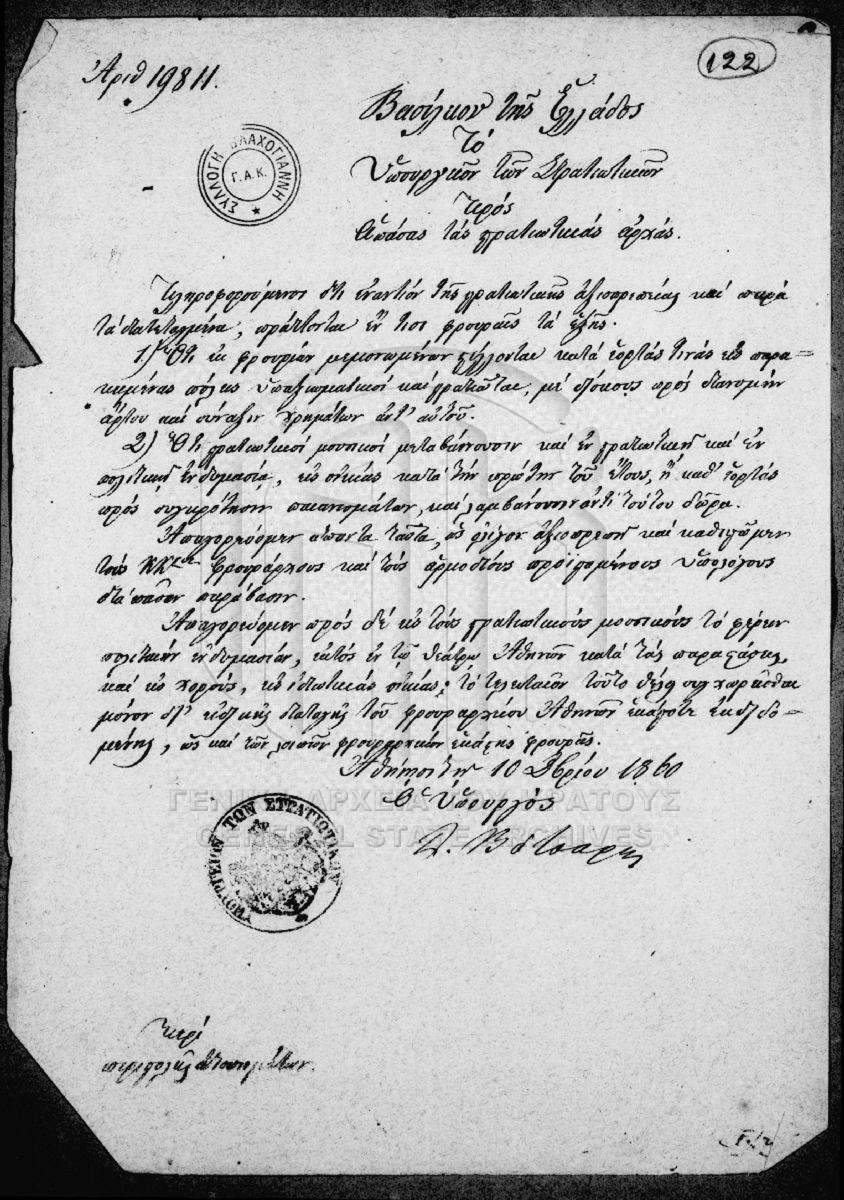 Ἀριθ 19811.
122
ΣΥΛΛΟΓΗ ΒΛΑΧΟΓΙΑΝΝΗ
Γ.Α.Κ.
Βασίλειον τῆς Ἑλλάδος
Τό
Ὑπουργεῖον τῶν Στρατιωτικῶν
Πρός
Ἁπάσας τάς στρατιωτικάς ἀρχάς.
Πληροφορούμενοι ὅτι ἐναντίον τῆς στρατιωτικῆς ἀξιοπρεπείας καί παρά
τά διατεταγμένα, πράττονται ἔν τισι φρουραῖς τά ἑξῆς.
1) Ὅτι ἐκ φρουρίων μεμονωμένων στέλλονται κατά ἑορτάς τινάς εἰς παρα-
κειμένας πόλεις ὑπαξιωματικοί καί στρατιῶται, μέ δίσκους πρός διανομήν
ἄρτου καί σύναξιν χρημάτων ἀντ' αὐτοῦ.
2) Ὅτι στρατιωτικοί μουσικοί μεταβαίνουσιν καί ἐν στρατιωτικῇ καί ἐν
πολιτικῇ ἐνδυμασίᾳ, εἰς οἰκίας κατά τήν πρώτην τοῦ Ἔτους, ἤ καθ' ἑορτάς
πρός συγκρότησιν παιανισμάτων, καί λαμβάνουσιν ἀντί τούτου δῶρα.
Ἀπαγορεύομεν ἅπαντα ταῦτα, ὡς ἀξιοπρεπῆ καί καθιστῶμεν
τούς ΚΚους Φρουράρχους καί τούς ἁρμοδίους προϊσταμένους ὑπολόγους
διά πᾶσαν παράβασιν.
Ἀπαγορεύομεν πρός δέ εἰς τούς στρατιωτικούς μουσικούς τό φέρειν
πολιτικήν ἐνδυμασίαν, ἐκτός ἐν τῷ θεάτρῳ Ἀθηνῶν κατά τάς παραστάσεις,
καί εἰς χορούς, εἰς ἰδιωτικάς οἰκίας· τό τελευταῖον τοῦτο θέλει συγχωρεῖσθαι
μόνον δι' εἰδικῆς διαταγῆς τοῦ φρουραρχείου Ἀθηνῶν ἑκάστοτε ἐκδιδο-
μένης, ὡς καί τῶν λοιπῶν φρουραρχείων ἑκάστης φρουρᾶς.
Ἀθήνησι τήν 10 Δβρίου 1860
Ὁ Ὑπουργός
Δ. Βότσαρης
ΥΠΟΥΡΓΕΙΟΝ ΤΩΝ ΣΤΡΑΤΙΩΤΙΚΩΝ
ΓΕΝΙΚΑ ΑΡΧΕΙΑ ΤΟΥ ΚΡΑΤΟΥΣ
GENERAL STATE ARCHIVES
Περί